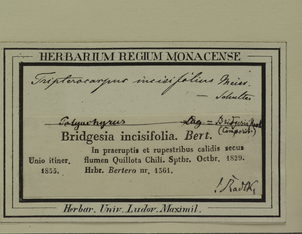 HERBARIUM REGIUM MONACENSE
Tripterocarpus incisifolius Meisn.
Polyachyrus Lag —
(Composit.)
Bridgesia incisifolia. Bert.
In praeruptis et rupestribus calidis secus
Unio itiner. flumen Quillota Chili. Sptbr. Octbr. 1829.
1835. Hrbr. Bertero nr. 1361.
J. Radlk.
Herbar. Univ. Ludov. Maximil.